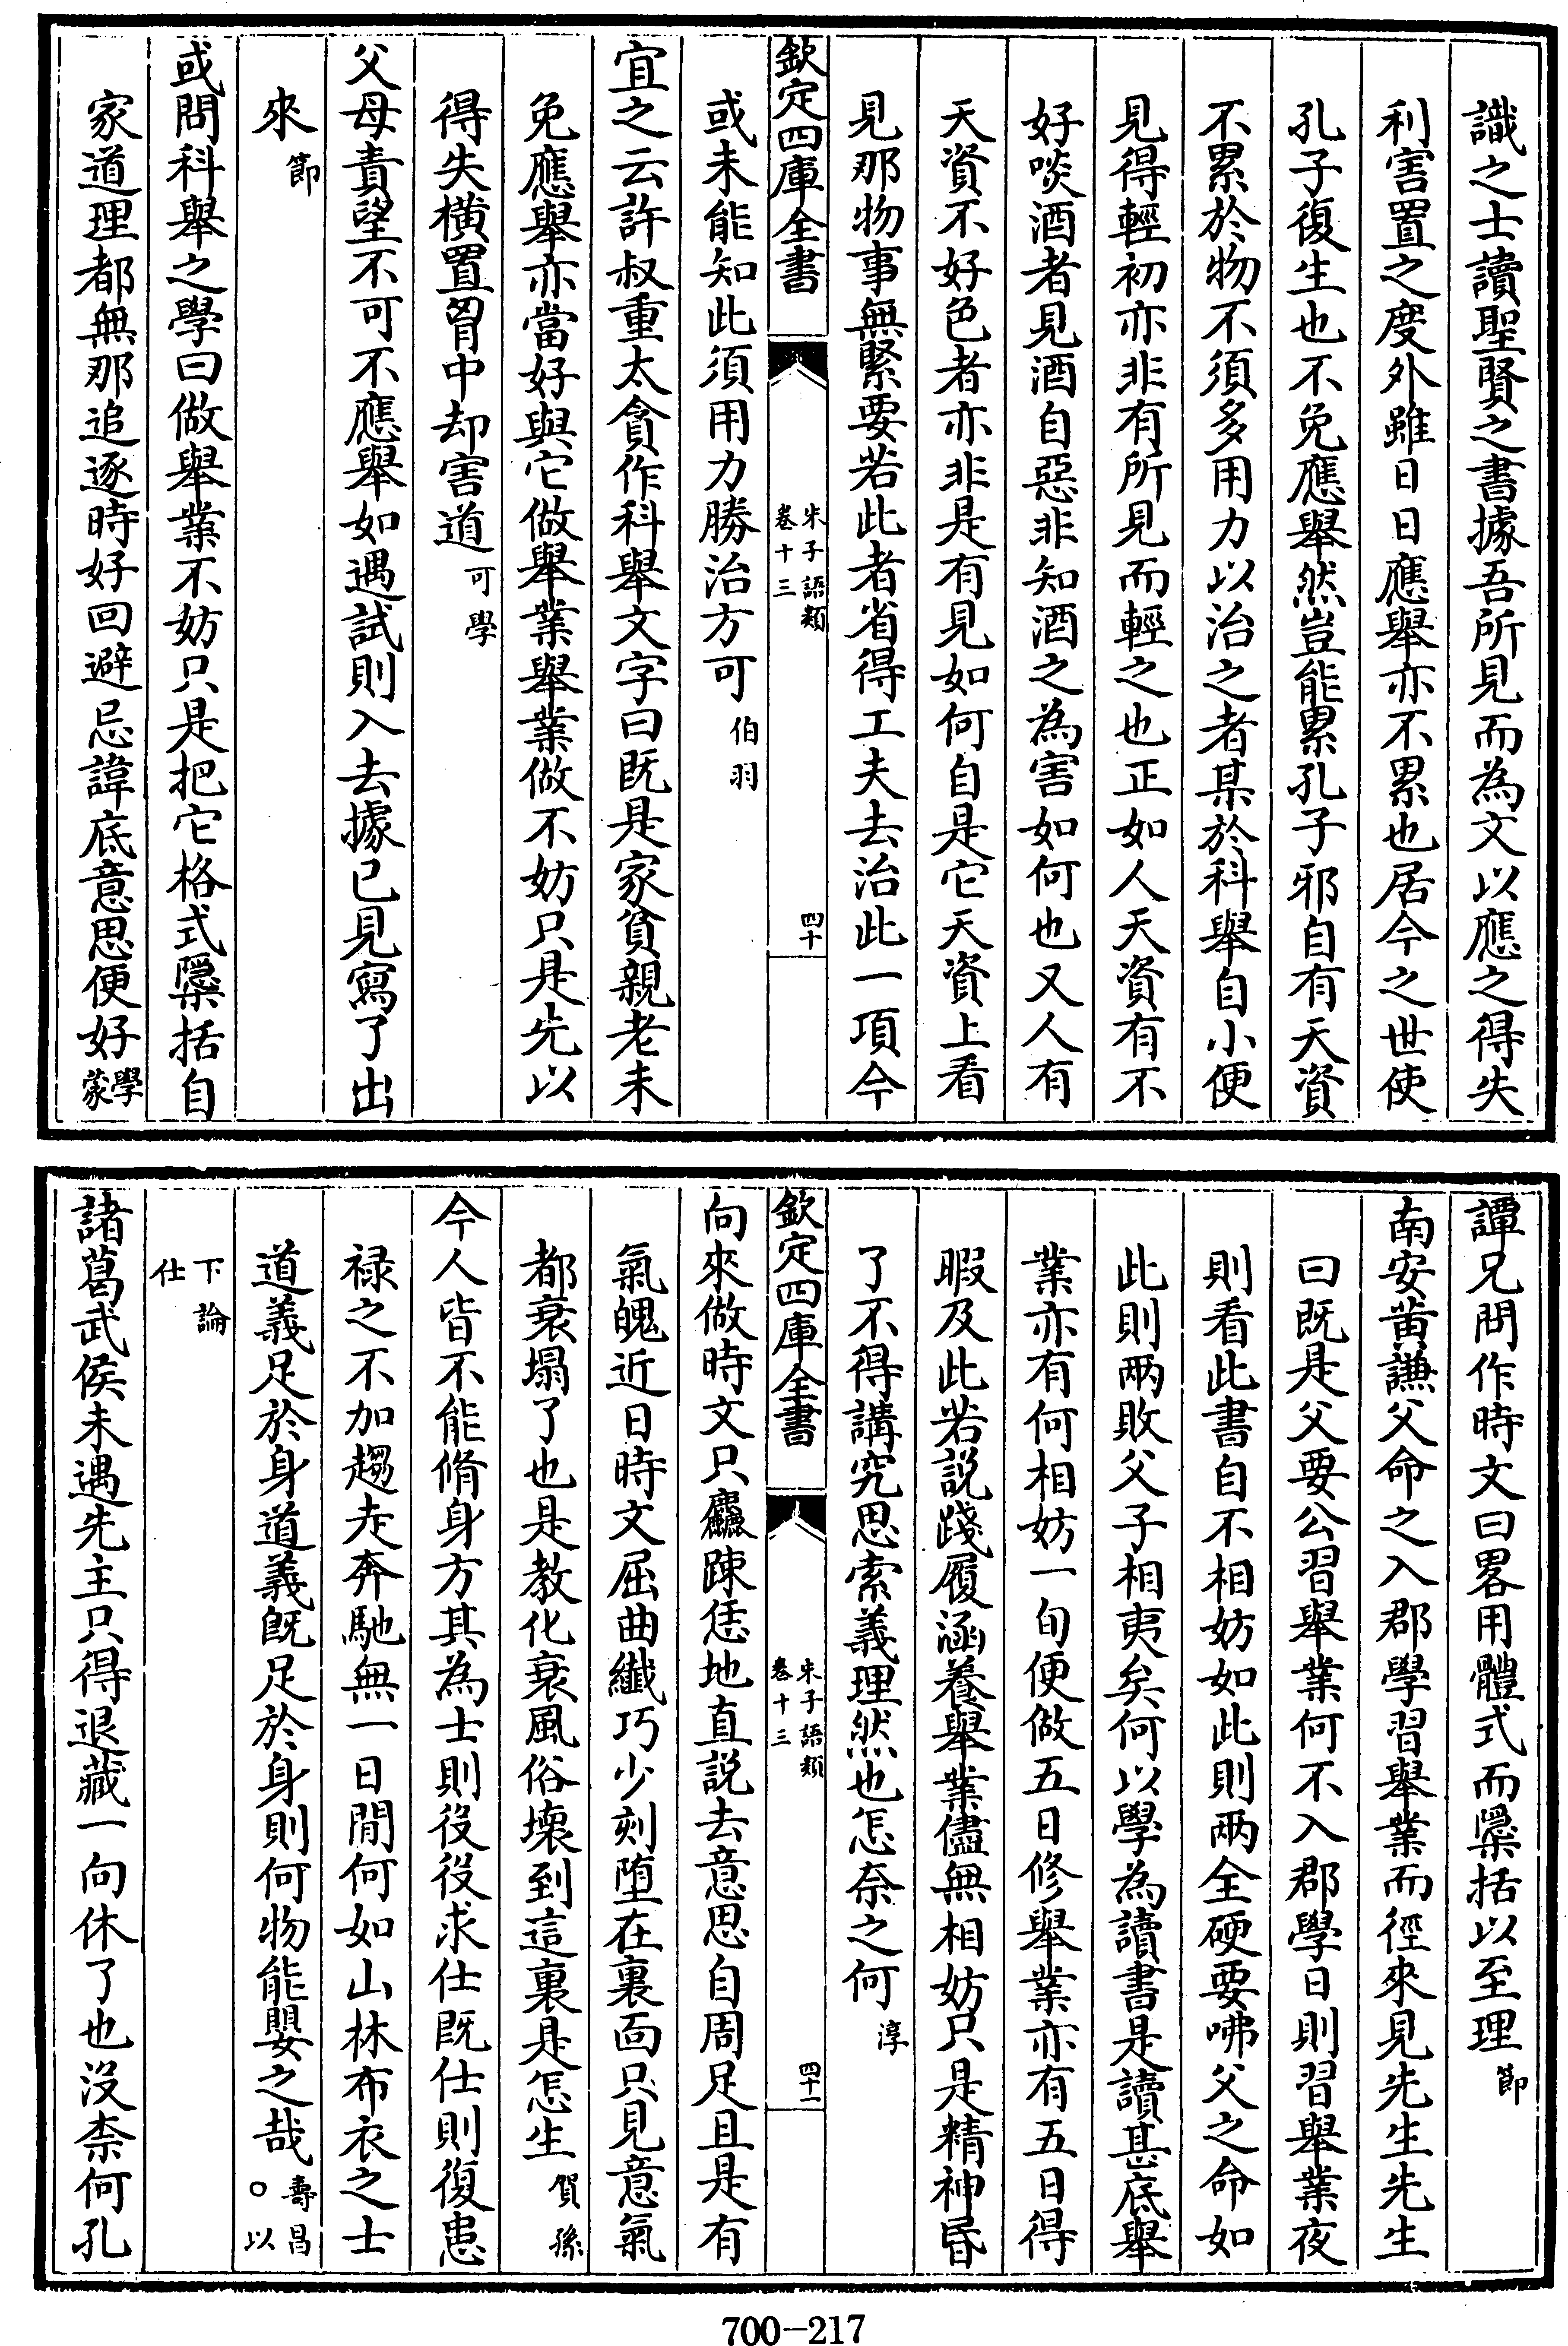 識之士讀聖賢之書據吾所見而為文以應之得失
利害置之度外雖日日應舉亦不累也居今之世使
孔子復生也不免應舉然豈能累孔子邪自有天資
不累於物不須多用力以治之者某於科舉自小便
見得輕初亦非有所見而輕之也正如人天資有不
好啖酒者見酒自惡非知酒之為害如何也又人有
天資不好色者亦非是有見如何自是它天資上看
見那物事無緊要若此者省得工夫去治此一項今
欽定四庫全書
朱子語類
卷十三
四十
或未能知此須用力勝治方可伯羽
宜之云許叔重太貪作科舉文字曰既是家貧親老未
免應舉亦當好與它做舉業舉業做不妨只是先以
得失橫置胷中却害道可學
父母責望不可不應舉如遇試則入去據已見寫了出
來節
或問科舉之學曰做舉業不妨只是把它格式檃括自
家道理都無那追逐時好回避忌諱底意思便好學蒙
譚兄問作時文曰畧用體式而檃括以至理節
南安黄謙父命之入郡學習舉業而徑來見先生先生
曰既是父要公習舉業何不入郡學日則習舉業夜
則看此書自不相妨如此則兩全硬要咈父之命如
此則兩敗父子相夷矣何以學為讀書是讀甚底舉
業亦有何相妨一旬便做五日修舉業亦有五日得
暇及此若説踐履涵養舉業儘無相妨只是精神昏
了不得講究思索義理然也怎奈之何淳
欽定四庫全書
朱子語類
卷十三
四十一
向來做時文只麤踈恁地直説去意思自周足且是有
氣魄近日時文屈曲纖巧少刻堕在裏面只見意氣
都衰塌了也是教化衰風俗壞到這裏是怎生賀孫
今人皆不能脩身方其為士則役役求仕既仕則復患
禄之不加趨走奔馳無一日閒何如山林布衣之士
道義足於身道義既足於身則何物能嬰之哉壽昌○以
下論仕
諸葛武侯未遇先主只得退藏一向休了也沒柰何孔
700-217